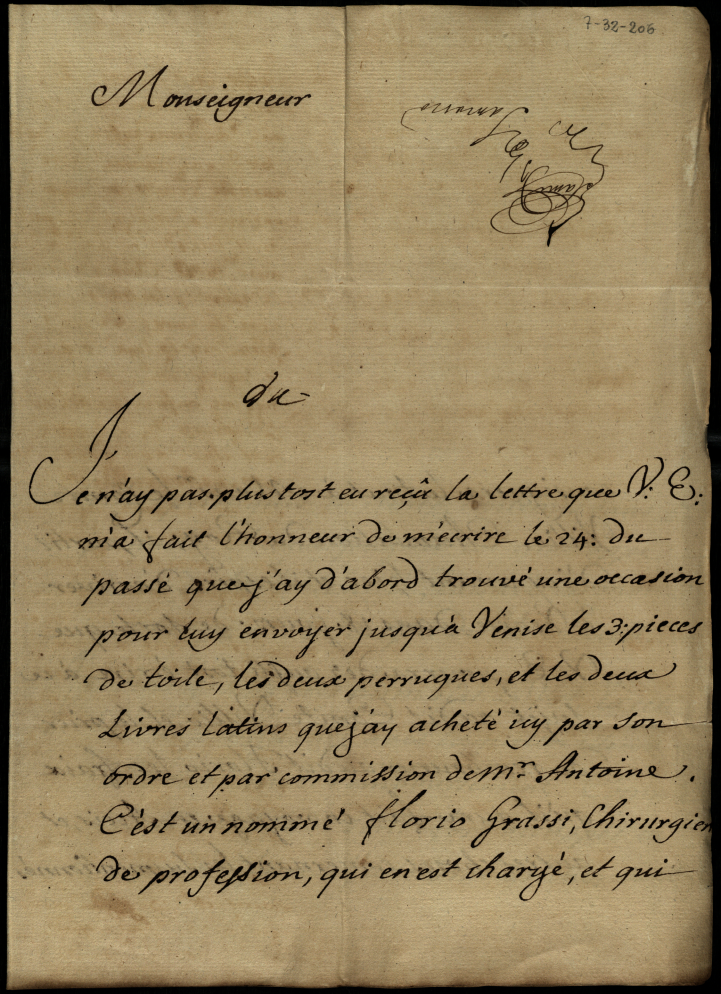 7-32-206
Monseigneur
du
Je n'ay pas plustost eu reçû la lettre que V: E:
m'a fait l'honneur de m'ecrire le 24: du
passé que j'ay d'abord trouvé une occasion
pour luy envoÿer jusqu'à Venise les 3: pieces
de toile, les deux perruques, et les deux
Livres latins que j'ay acheté icy par son
ordre et par commission de Mr. Antoine.
C'est un nommé florio Grassi, Chirurgien
de profession, qui en est chargé, et qui